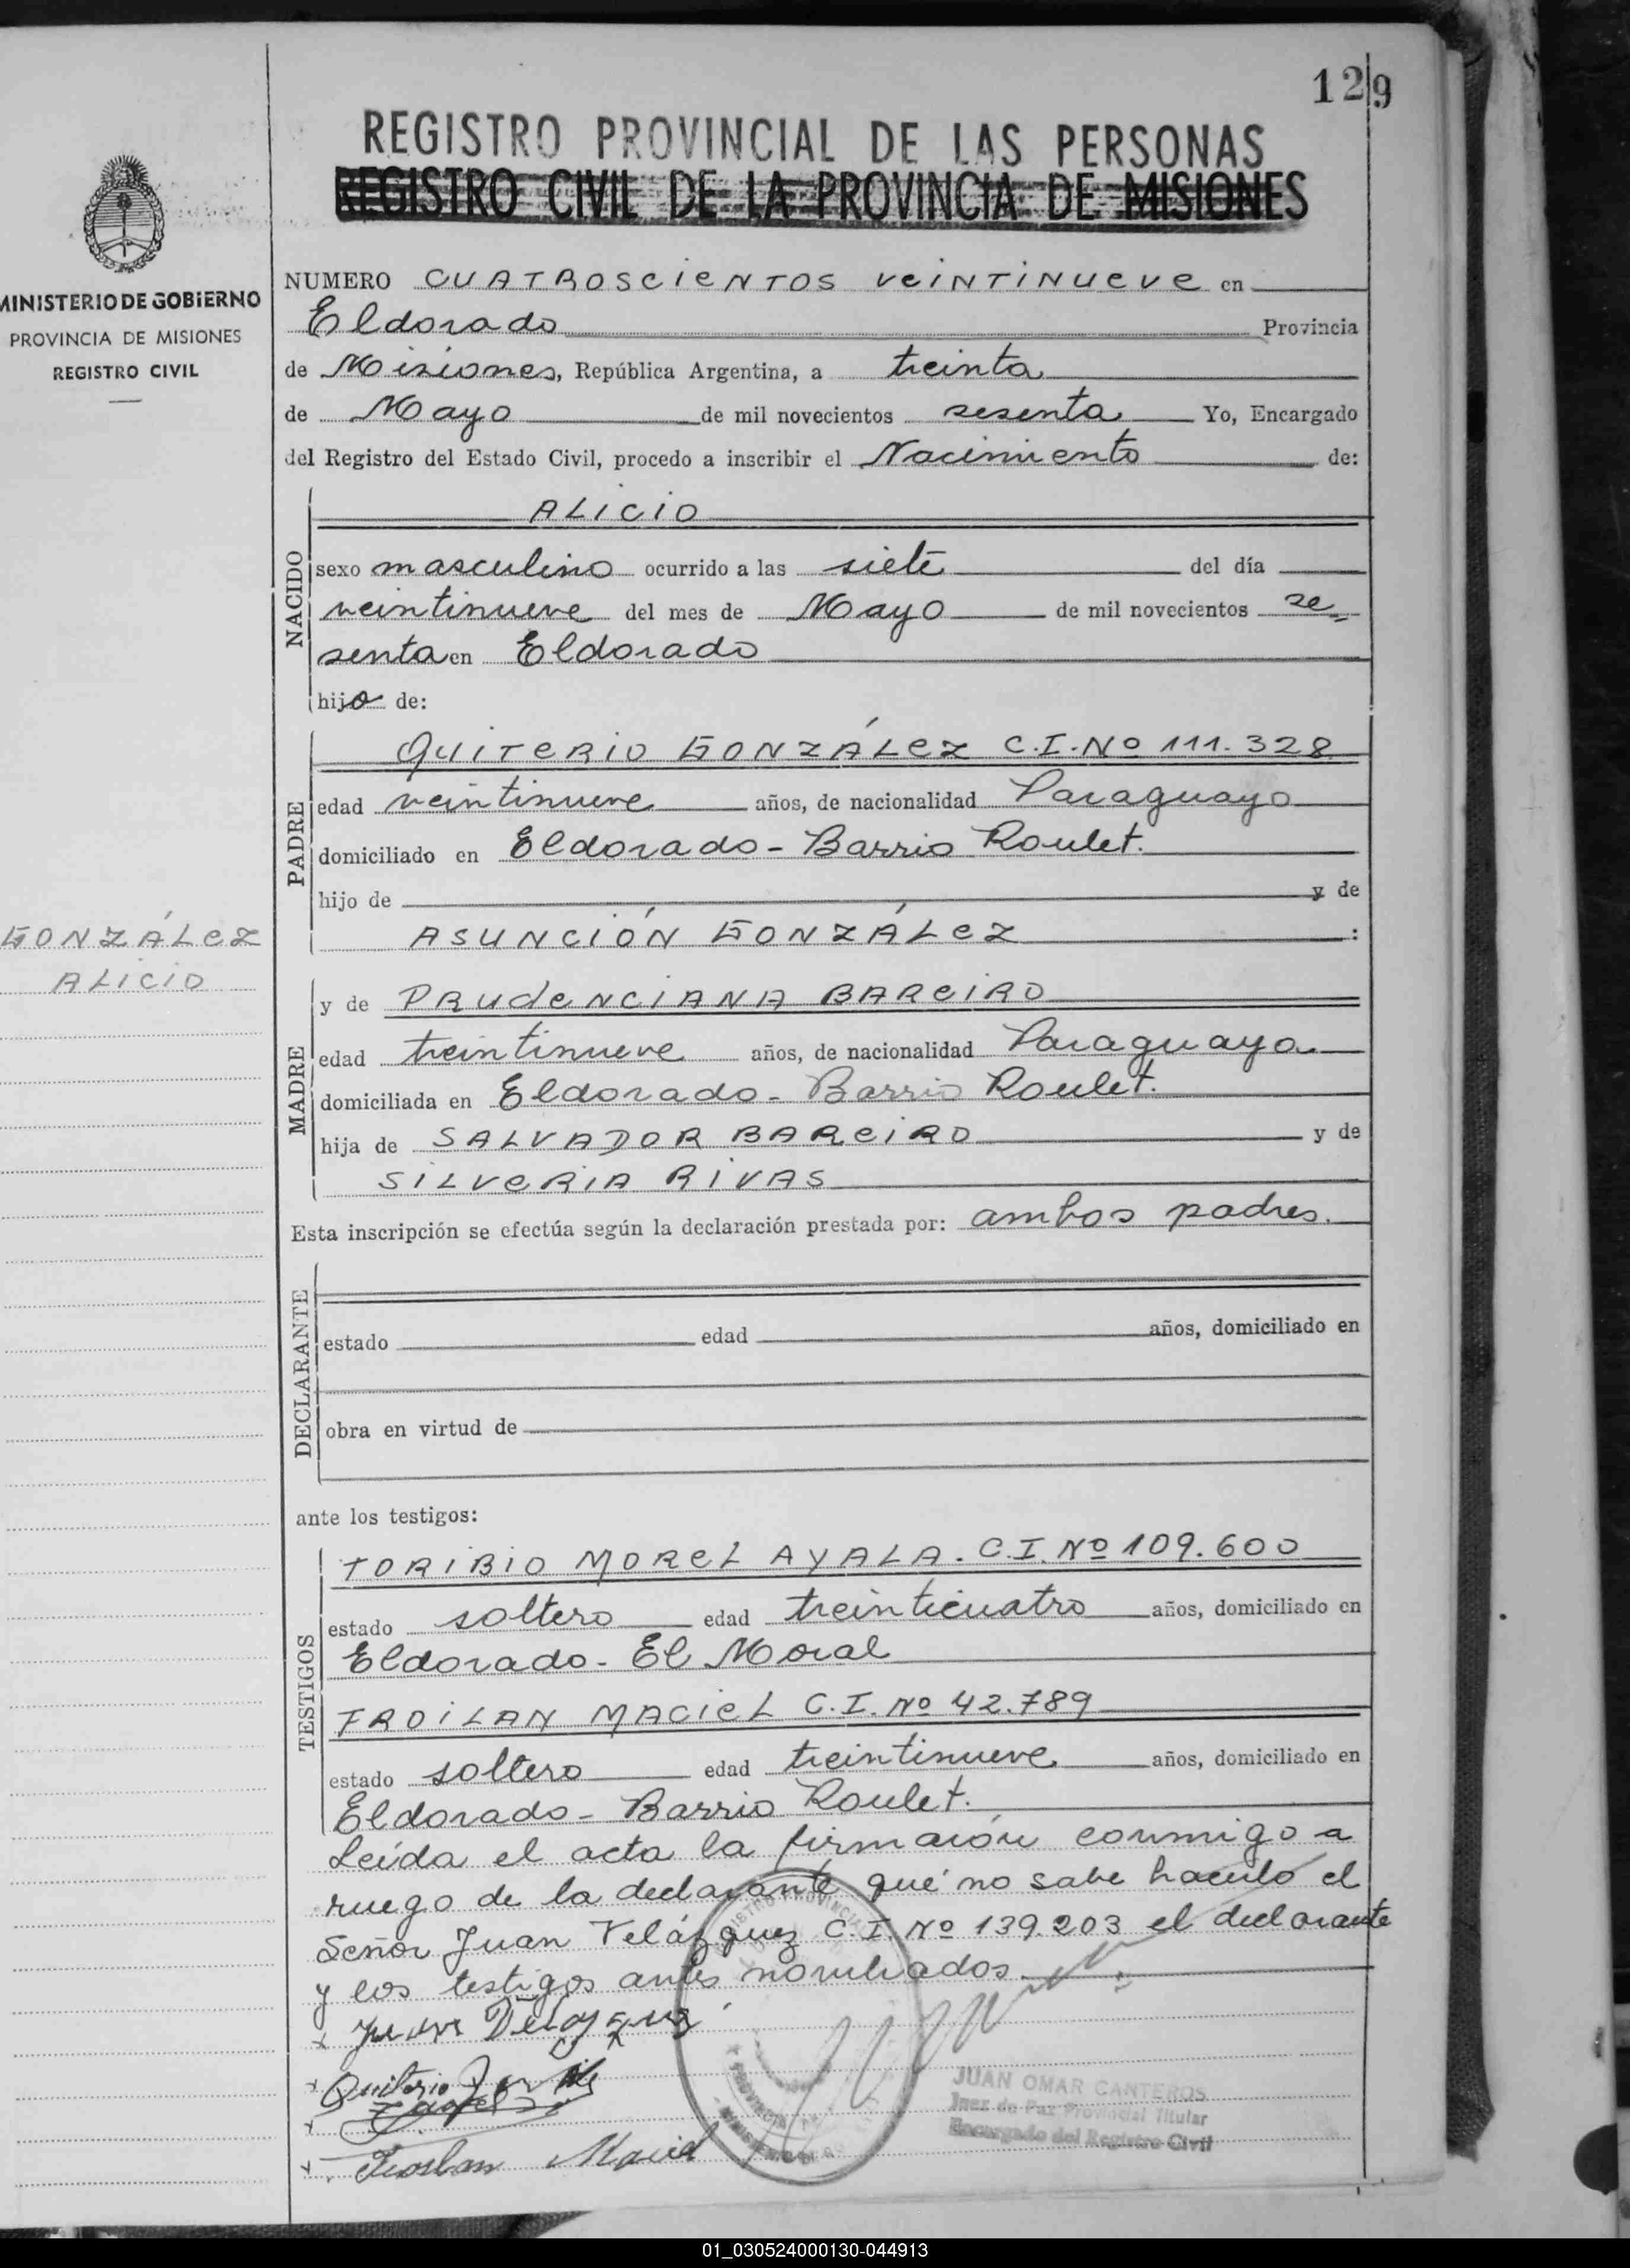 129
REGISTRO PROVINCIAL DE LAS PERSONAS
REGISTRO CIVIL DE LA PROVINCIA DE MISIONES
MINISTERIO DE GOBIERNO
PROVINCIA DE MISIONES
REGISTRO CIVIL
NUMERO CUATROSCIENTOS VEINTINUEVE en
Eldorado Provincia
de Misiones, República Argentina, a treinta
de Mayo de mil novecientos sesenta Yo, Encargado
del Registro del Estado Civil, procedo a inscribir el Nacimiento de:
NACIDO
ALICIO
sexo masculino ocurrido a las siete del día
veintinueve del mes de Mayo de mil novecientos se=
senta en Eldorado
hijo de:
PADRE
QUITERIO GONZÁLEZ C.I. Nº 111.328
edad veintinueve años, de nacionalidad Paraguayo
domiciliado en Eldorado - Barrio Roulet.
hijo de y de
ASUNCIÓN GONZÁLEZ :
GONZÁLEZ
ALICIO
MADRE
y de PRUDENCIANA BAREIRO
edad treintinueve años, de nacionalidad Paraguaya
domiciliada en Eldorado - Barrio Roulet.
hija de SALVADOR BAREIRO y de
SILVERIA RIVAS
Esta inscripción se efectúa según la declaración prestada por: ambos padres.
DECLARANTE
estado edad años, domiciliado en
obra en virtud de
ante los testigos:
TESTIGOS
TORIBIO MOREL AYALA. C.I. Nº 109.600
estado soltero edad treinticuatro años, domiciliado en
Eldorado - El Moral
FROILAN MACIEL C.I. Nº 42.789
estado soltero edad treintinueve años, domiciliado en
Eldorado - Barrio Roulet.
Leída el acta la firmaron conmigo a
ruego de la declarante que no sabe hacerlo el
Señor Juan Velázquez C.I. Nº 139.203 el declarante
y los testigos antes nombrados.
x Juan Velazquez
x Quiterio
x
x Froilan Maciel
JUAN OMAR CANTEROS
Juez de Paz Provincial Titular
Encargado del Registro Civil
01_030524000130-044913